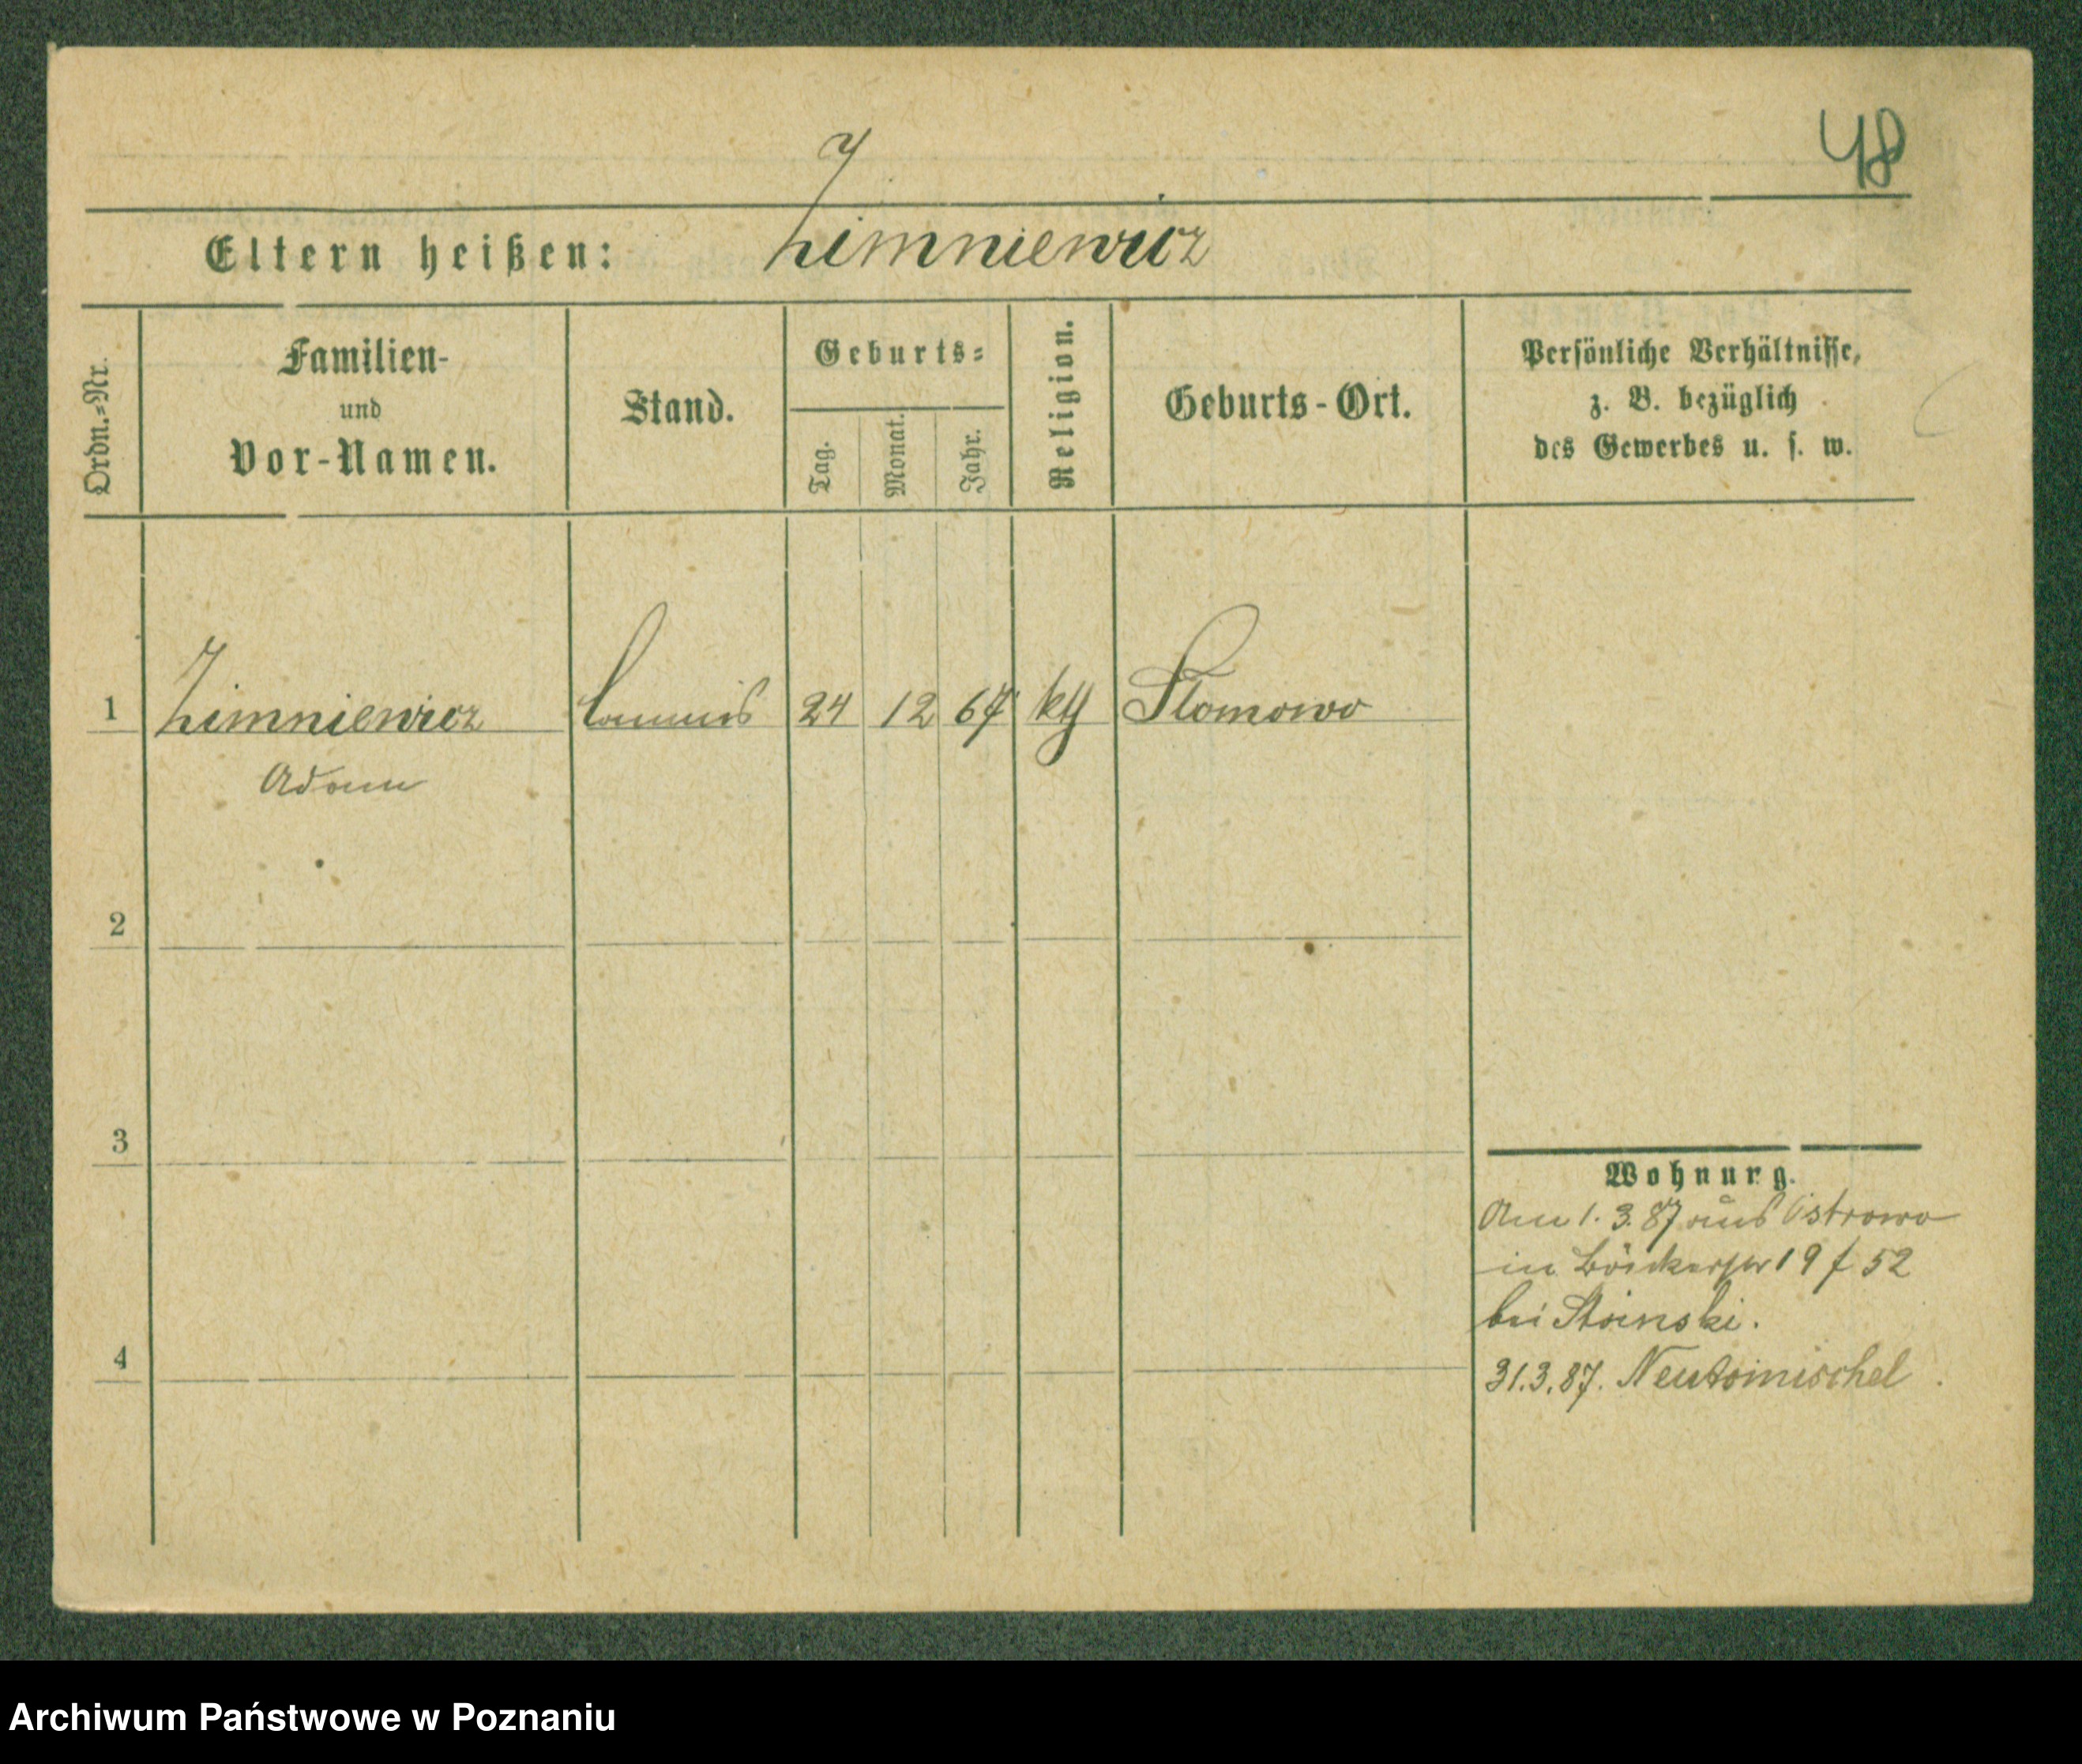 48
Eltern heißen: Zimniewicz
Ordn.=Nr.
Familien-
und
Vor-Namen.
Stand.
Geburts=
Tag.
Monat.
Jahr.
Religion.
Geburts-Ort.
Persönliche Verhältnisse,
z. B. bezüglich
des Gewerbes u. s. w.
1 Zimniewicz Commis 24 12 67 kth Slomowo
Adam
2
3
4
Wohnung.
Am 1.3.87 aus Ostrowo
in 19 f 52
bei Stoinski.
31.3.87. Neutomischel.
Archiwum Państwowe w Poznaniu